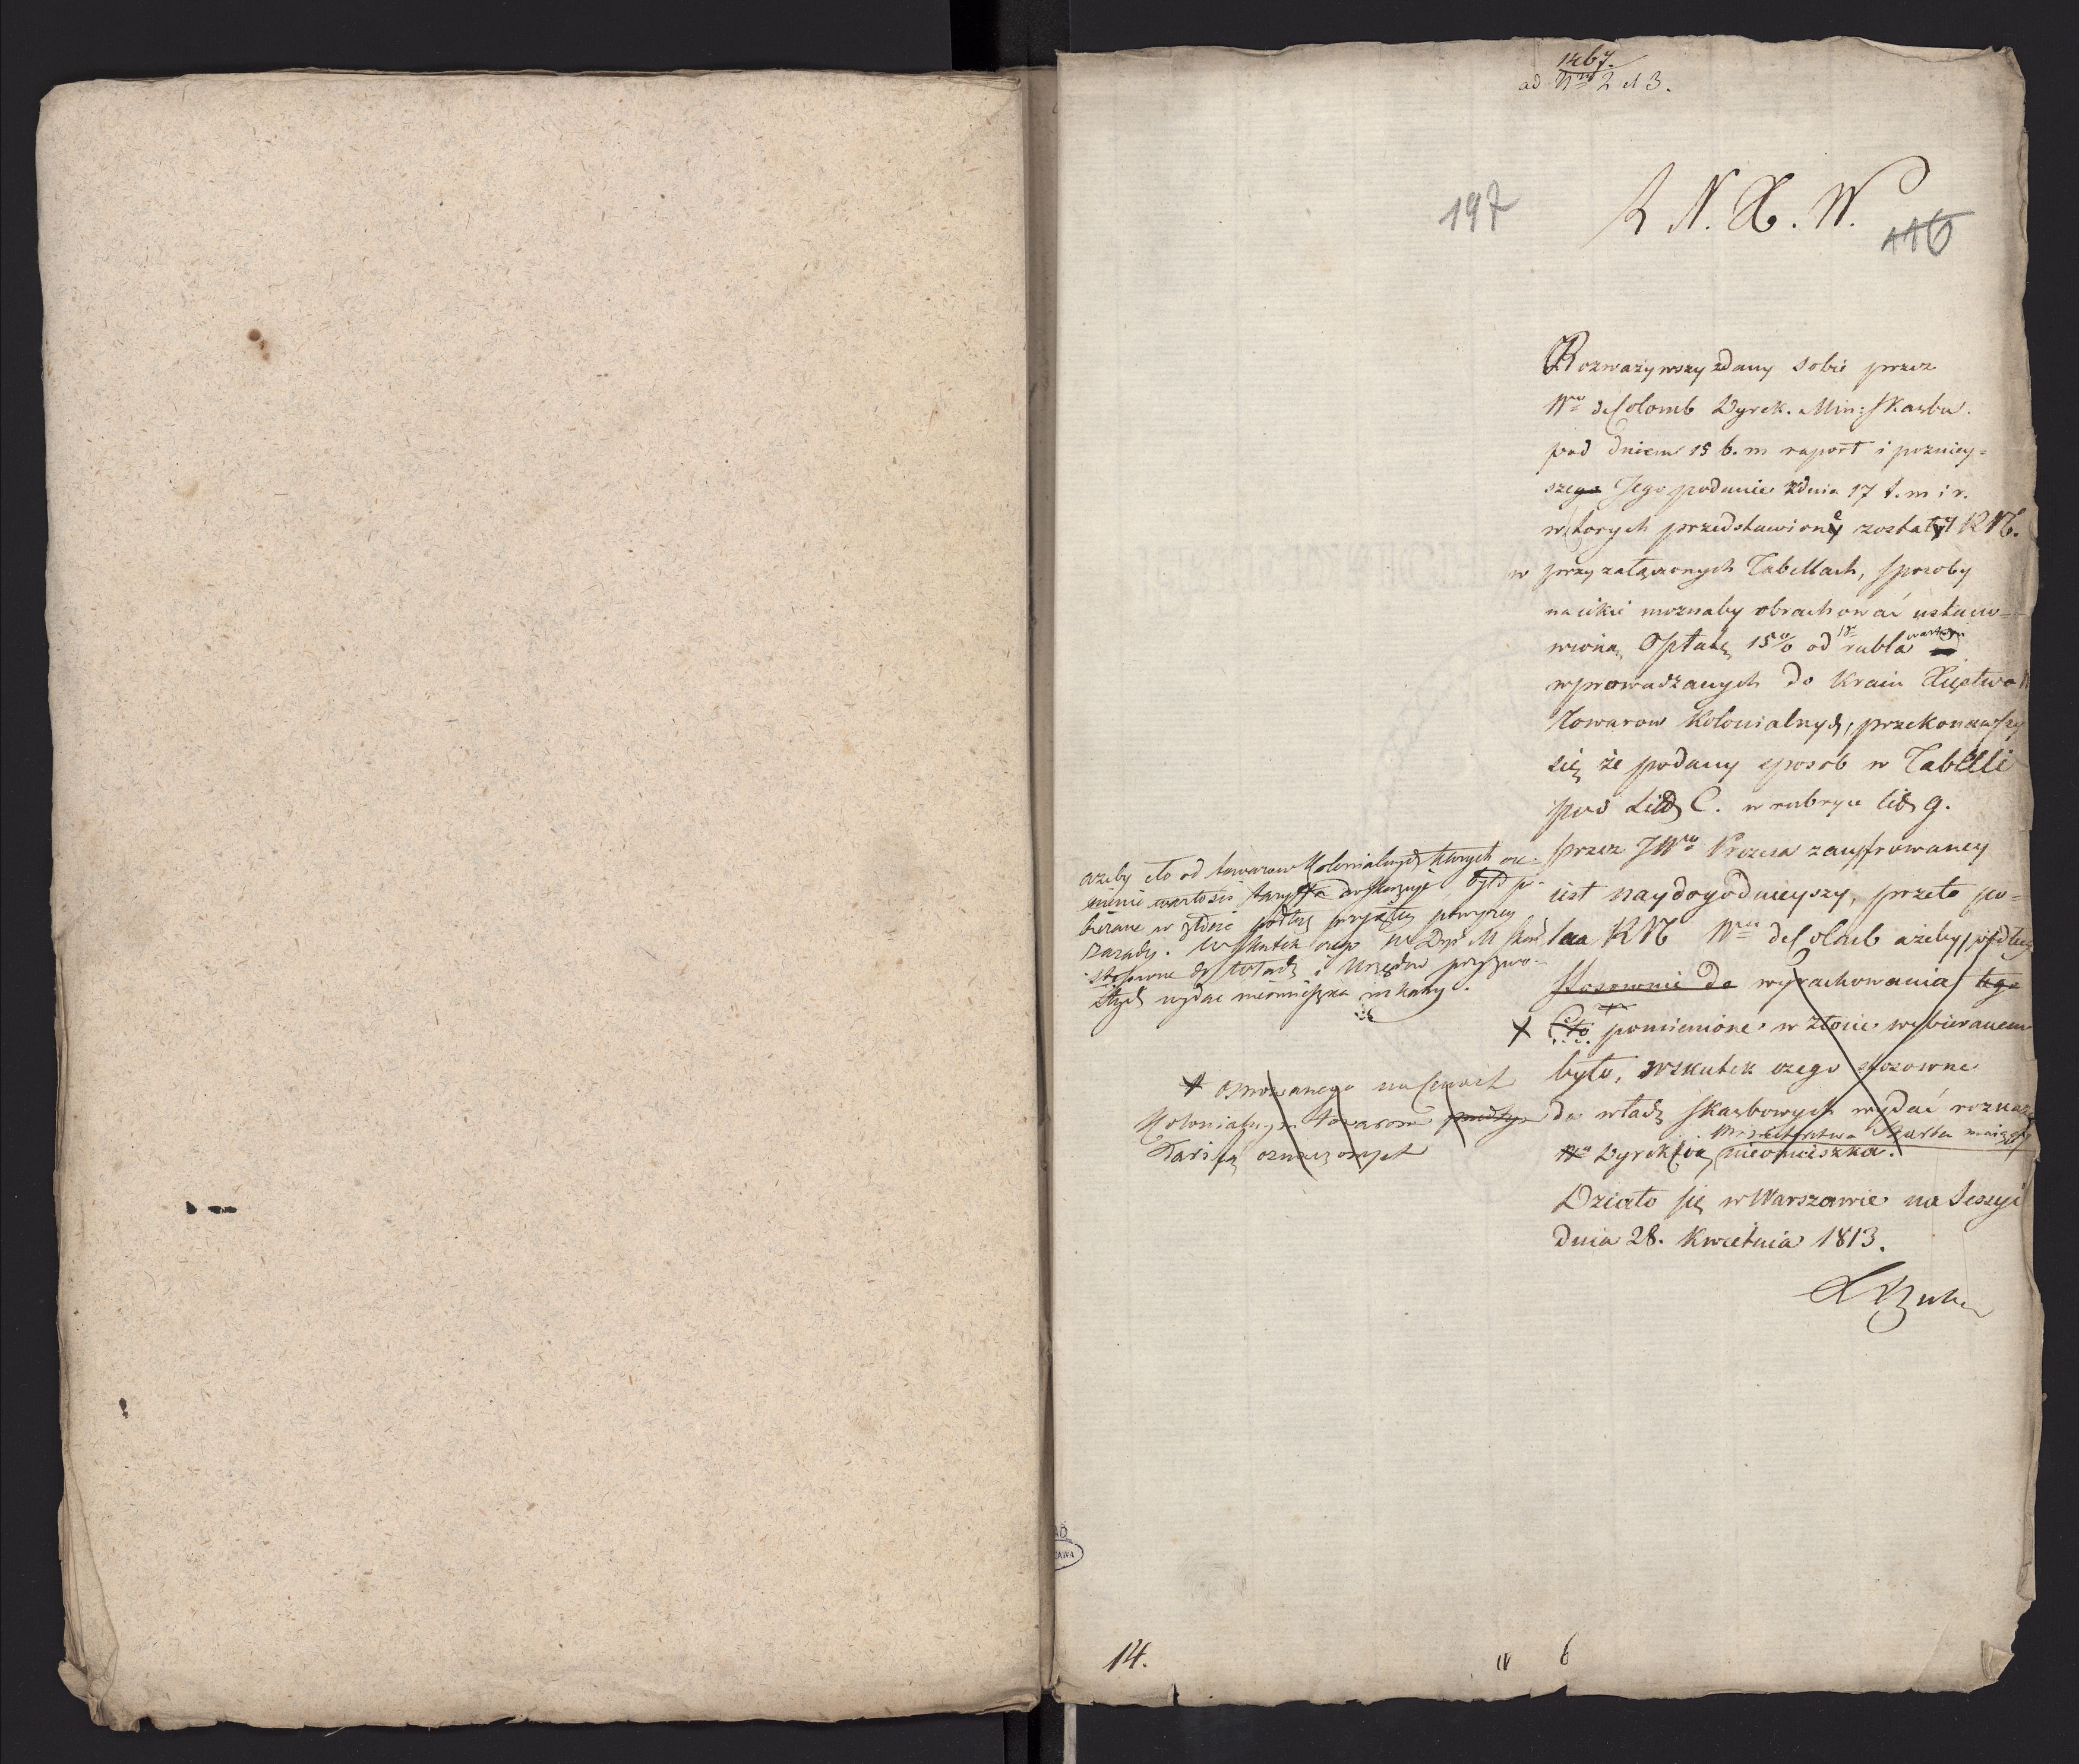 1467.
ad Nrū 2 et 3.
197
R N. X. W.
116
Rozważywszy zdany sobie przez
Wgo deColomb Dyrek. Min: Skarbu
pod dniem 15 b. m raport i pozniey-
szego Jego podanie z dnia 17 t. m i r.
w ktorych przedstawione zostały RN.
w przyzałączonych Tabellach, sposoby
na iakie moznaby obrachować ustano-
wioną Opłatę 15% od rubla wartości
wprowadzanych do Kraiu Xięstwa
Towarow Kolonialnych, przekonawszy
się że podany sposób w Tabelli
pod Litt C. w rubryce litt g.
przez JWgo Prezesa zacyfrowaney
iest naydogodnieyszy, przeto po-
leca RN Wmu deColomb ażeby podług
stosownie do wyrachowania tego
+ Cło pomienione w złocie wybieranem
było, wskutek czego stosowne
do władz skarbowych wydać rozkazy
Ministerstwa Skarbu
Dyrekcya nieomieszka.
Działo się w Warszawie na Sessyi
dnia 28. Kwietnia 1813.
ażeby cło od towarow Kolonialnych ktorych
mienie wartości taryffa wskazuje było po-
bierane w złocie podług przyjętey powyzey
zasady. Wskutek czego W Dyr M Skar
stosowne do Władz i Urzędow przyzwo-
itych wydać nieomieszka rozkazy.
+ na Cenach
Kolonialnym towarom
Tariffą oznaczonych
14.
6